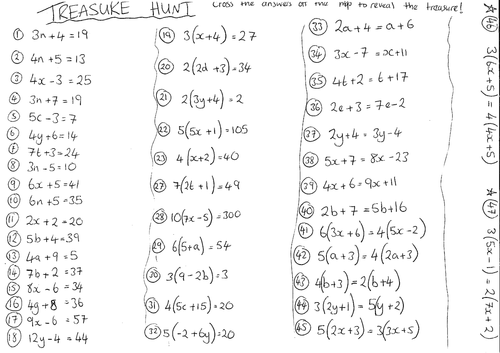 TREASURE HUNT
Cross the answers on the map to reveal the treasure!
① 3n + 4 = 19
② 4n + 5 = 13
③ 4x - 3 = 25
④ 3n + 7 = 19
⑤ 5c - 3 = 7
⑥ 4y + 6 = 14
⑦ 7t + 3 = 24
⑧ 3n - 5 = 10
⑨ 6x + 5 = 41
⑩ 6n + 5 = 35
⑪ 2x + 2 = 20
⑫ 5b + 4 = 39
⑬ 4a + 9 = 5
⑭ 7b + 2 = 37
⑮ 8x - 6 = 34
⑯ 4g + 8 = 36
⑰ 9x - 6 = 57
⑱ 12y - 4 = 44
⑲ 3(x + 4) = 27
⑳ 2(2d + 3) = 34
㉑ 2(3y + 4) = 2
㉒ 5(5x + 1) = 105
㉓ 4(x + 2) = 40
㉗ 7(2t + 1) = 49
㉘ 10(7x - 5) = 300
㉙ 6(5 + a) = 54
㉚ 3(9 - 2b) = 3
㉛ 4(5c + 15) = 20
㉜ 5(-2 + 6y) = 20
㉝ 2a + 4 = a + 6
㉞ 3x - 7 = x + 11
㉟ 4t + 2 = t + 17
㊱ 2e + 3 = 7e - 2
㉗ 2y + 4 = 3y - 4
㊳ 5x + 7 = 8x - 23
㊴ 4x + 6 = 9x + 11
㊵ 2b + 7 = 5b + 16
㊶ 6(3x + 6) = 4(5x - 2)
㊷ 5(a + 3) = 4(2a + 3)
㊸ 4(b + 3) = 2(b + 4)
㊹ 3(2y + 1) = 5(y + 2)
㊺ 5(2x + 3) = 3(3x + 5)
★㊻ 3(6x + 5) = 4(4x + 5)
★㊼ 3(5x - 1) = 2(7x + 2)